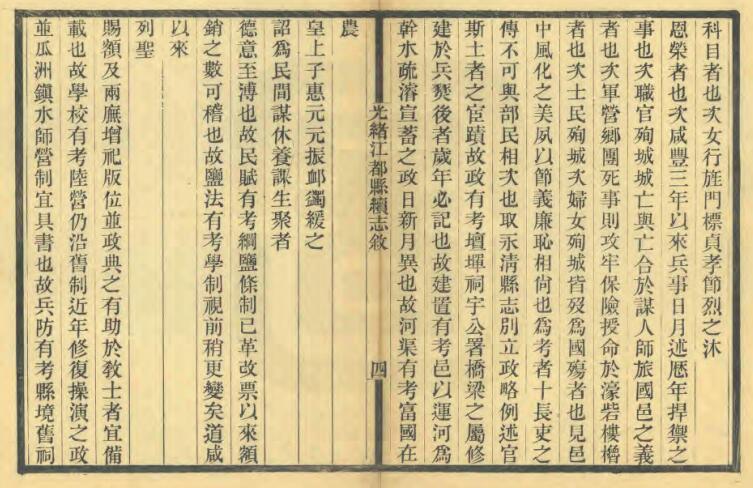 科目者也次女行旌門標貞孝節烈之沐
恩榮者也次咸豐三年以來兵事日月述歷年捍禦之
事也次職官殉城城亡與亡合於謀人師旅國邑之義
者也次軍營鄉團死事則攻牢保險授命於濠砦樓櫓
者也次士民殉城次婦女殉城皆歿爲國殤者也見邑
中風化之美夙以節義廉恥相尙也爲考者十長吏之
傳不可與部民相次也取永清縣志別立政略例述官
斯土者之宦蹟故政有考壇墠祠宇公署橋梁之屬修
建於兵燹後者歲年必記也故建置有考邑以運河爲
幹水疏濬宣蓄之政日新月異也故河渠有考富國在
光緒江都縣續志敘
四
農
皇上子惠元元振卹蠲緩之
詔爲民間謀休養課生聚者
德意至溥也故民賦有考綱鹽條制已革改票以來額
銷之數可稽也故鹽法有考學制視前稍更變矣道咸
以來
列聖
賜額及兩廡增祀版位並政典之有助於敎士者宜備
載也故學校有考陸營仍沿舊制近年修復操演之政
並瓜洲鎭水師營制宜具書也故兵防有考縣境舊祠